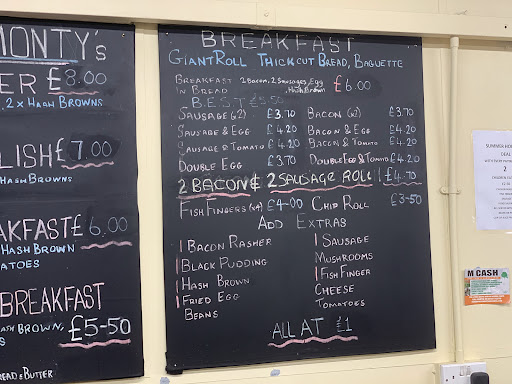 MONTY'S
ER £8.00
2 x HASH BROWNS
LISH £7.00
HASH BROWNS
AKFAST £6.00
HASH BROWN
ATOES
BREAKFAST
HASH BROWN, £5-50
READ & BUTTER
BREAKFAST
GIANT ROLL THICK CUT BREAD, BAGUETTE
BREAKFAST 2 BACON, 2 SAUSAGES, EGG
IN BREAD HASH BROWN £6.00
B.E.S.T £5-50
SAUSAGE (x2) £3.70 BACON (x2) £3.70
SAUSAGE & EGG £4.20 BACON & EGG £4.20
SAUSAGE & TOMATO £4.20 BACON & TOMATO £4.20
DOUBLE EGG £3.70 DOUBLE EGG & TOMATO £4.20
2 BACON & 2 SAUSAGE ROLL £4.70
FISH FINGERS (x4) £4-00 CHIP ROLL £3-50
ADD EXTRAS
1 BACON RASHER 1 SAUSAGE
BLACK PUDDING MUSHROOMS
HASH BROWN 1 FISH FINGER
FRIED EGG CHEESE
BEANS TOMATOES
ALL AT £1
SUMMER
DEAL
2
M CASH